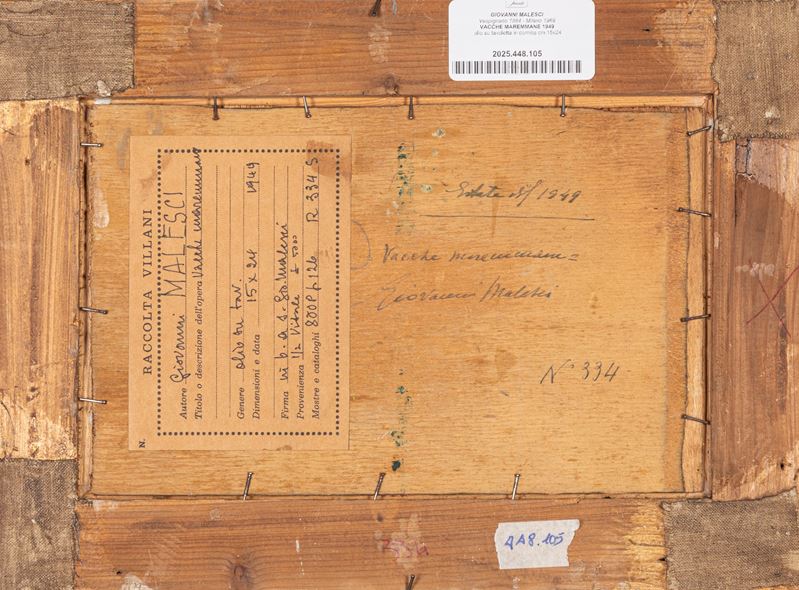 GIOVANNI MALESCI
Vespignano 1884 - Milano 1969
VACCHE MAREMMANE 1949
olio su tavoletta in cornice cm 15x24
2025.448.105
RACCOLTA VILLANI
N.
Autore Giovanni MALESCI
Titolo o descrizione dell'opera Vacche maremmane
Genere olio su tav.
Dimensioni e data 15 x 24 1949
Firma in b. a s. Gio. Malesci
Provenienza 1/2 Vitale
Mostre e cataloghi R 334 S
Estate 1949
Vacche maremmane
Giovanni Malesci
N° 334
448.105